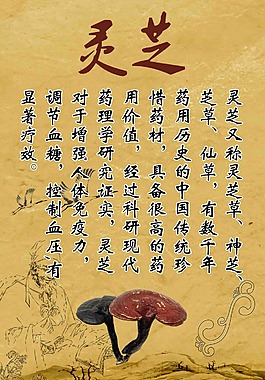 灵芝
灵芝又称灵芝草、神芝、
芝草、仙草，有数千年
药用历史的中国传统珍
惜药材，具备很高的药
用价值，经过科研现代
药理学研究证实，灵芝
对于增强人体免疫力，
调节血糖，控制血压，有
显著疗效。